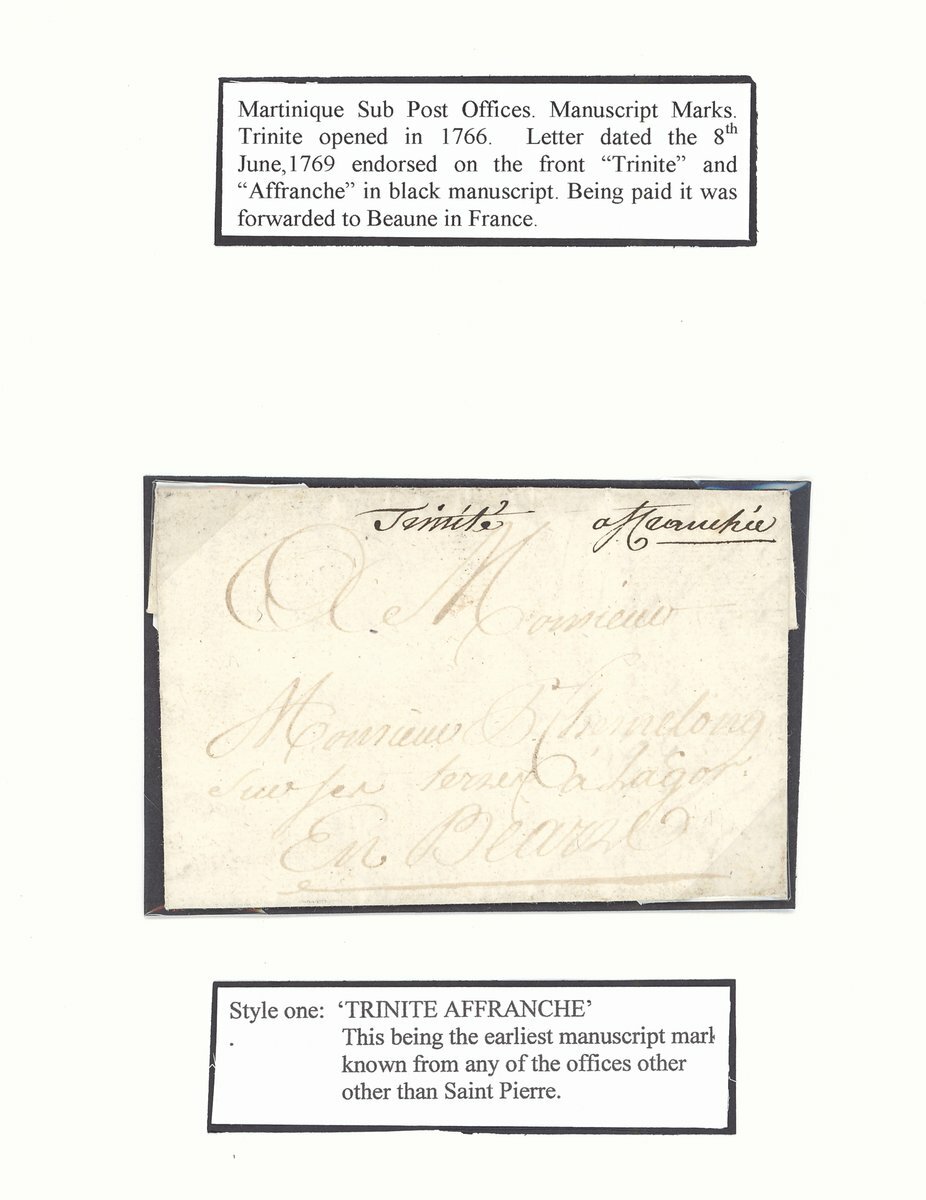 Martinique Sub Post Offices. Manuscript Marks.
Trinite opened in 1766. Letter dated the 8th
June,1769 endorsed on the front “Trinite” and
“Affranche” in black manuscript. Being paid it was
forwarded to Beaune in France.
Trinité affranchie
A Monsieur
Monsieur
Sur ses terres à Lagor.
En Bearn
Style one: ‘TRINITE AFFRANCHE’
. This being the earliest manuscript mark
known from any of the offices other
other than Saint Pierre.